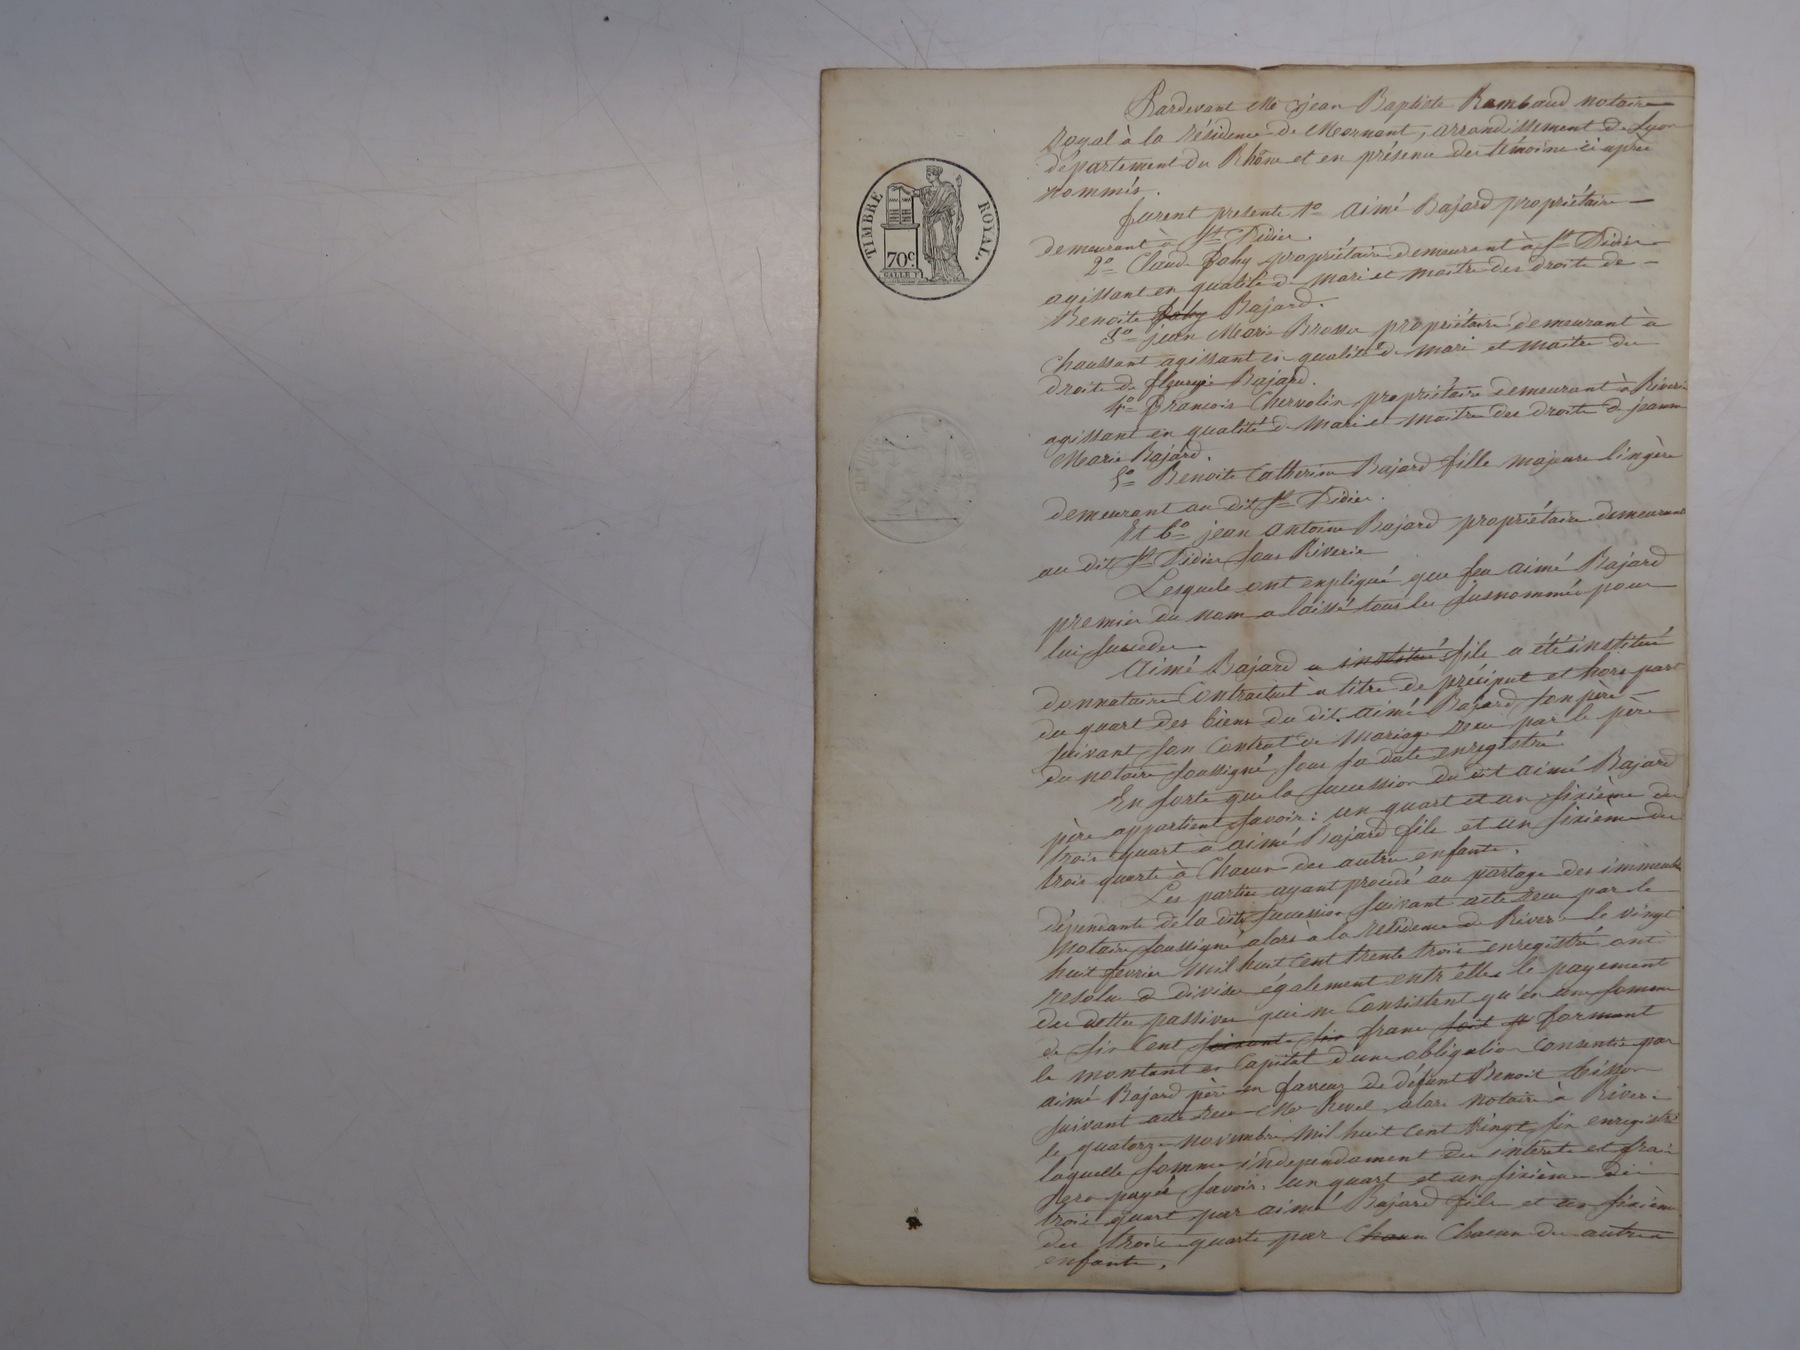 Pardevant Me jean Baptiste Rambaud notaire
royal à la résidence de Mornant, arrondissement de Lyon
département du Rhône et en présence des témoins ci après
nommés.
furent presents 1o Aimé Bajard propriétaire
demeurant à St Didier.
2o Claude Pohy propriétaire demeurant à St Didier
agissant en qualité de mari et maitre des droits de
Benoite Pohy Bajard.
3o jean Marie Brossu propriétaire demeurant à
Chaussant agissant en qualité de mari et maitre des
droits de fleurie Bajard.
4o francois Chervolin propriétaire demeurant à Riverie
agissant en qualité de mari et maitre des droits de jeanne
Marie Bajard.
5o Benoite Catherine Bajard fille majeure lingère
demeurant au dit St Didier.
Et 6o jean antoine Bajard propriétaire demeurant
au dit St Didier sous Riverie
Lesquels ont expliqué que feu aimé Bajard
premier du nom a laissé tous les susnommés pour
lui succeder
Aimé Bajard a institué fils a été institué
donnataire Contractuel à titre de préciput et hors part
du quart des biens du dit aimé Bajard son père
suivant son Contrat de mariage recu par le père
du notaire soussigné sous sa date enregistré.
En sorte que la succession du dit aimé Bajard
père appartient savoir: un quart et un sixième des
trois quart à aimé Bajard fils et un sixième des
trois quarts à Chacun des autres enfants.
Les parties ayant procédé au partage des immeubles
dépendants de la dite succession suivant acte recu par le
notaire soussigné alors à la résidence de Riverie le vingt
huit fevrier mil huit cent trente trois enregistré ont
resolu de diviser également entr'elles le payement
des dettes passives qui ne Consistent qu'en une somme
de six Cent soixante six francs soit formant
le montant en Capital d'une obligation Consentie par
aimé Bajard père en faveur de défunt Benoit
suivant acte recu Me Revel alors notaire à Riverie
le quatorze novembre mil huit cent vingt six enregistré
laquelle somme independament des intérets et frais
sera payée savoir: un quart et un sixième des
trois quart par aimé Bajard fils et un sixième
des trois quarts par Chacun des autres
enfants.
TIMBRE ROYAL.
70c.